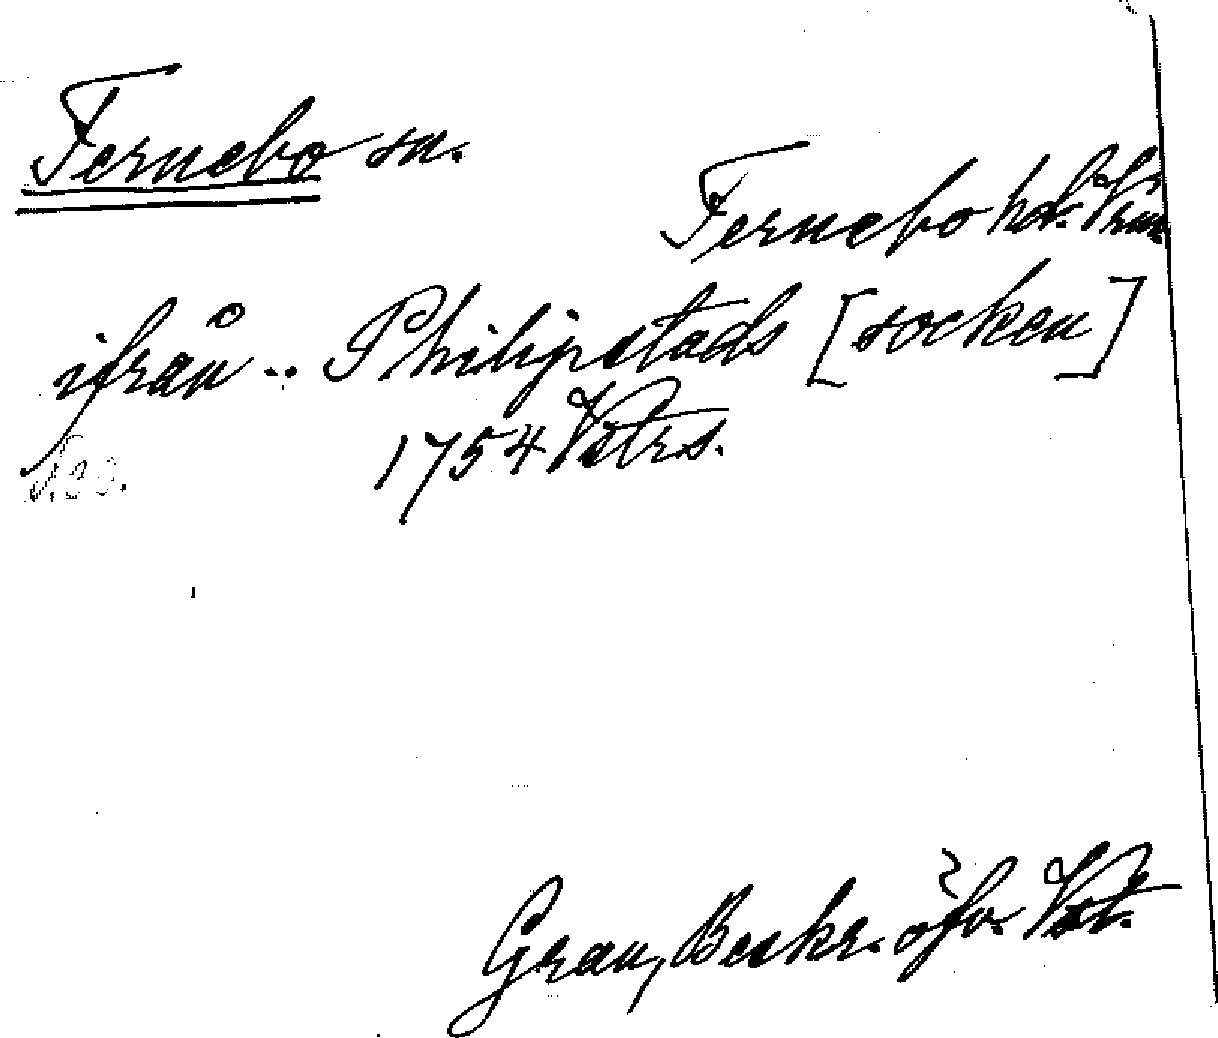 Fernebo sn.
Fernebo hd. Vrml.
ifrån .. Philipstads [socken]
1754 Vstrs.
S. 30.
Grau, Beskr. öfv. Vstl.